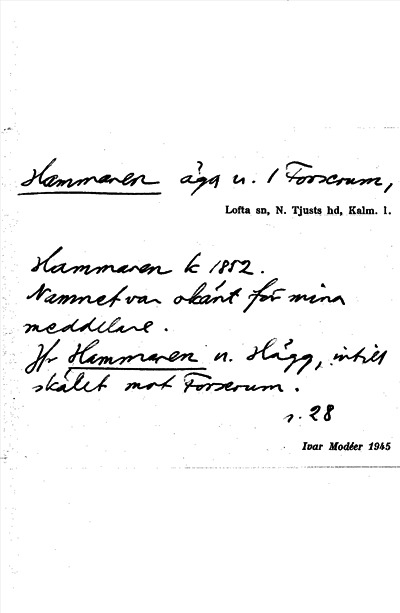 Hammaren äga u. 1 Forserum,
Lofta sn, N. Tjusts hd, Kalm. l.
Hammaren k 1852.
Namnet var okänt för mina
meddelare.
Jfr Hammaren u. Hägg, intill
skälet mot Forserum.
s. 28
Ivar Modéer 1945